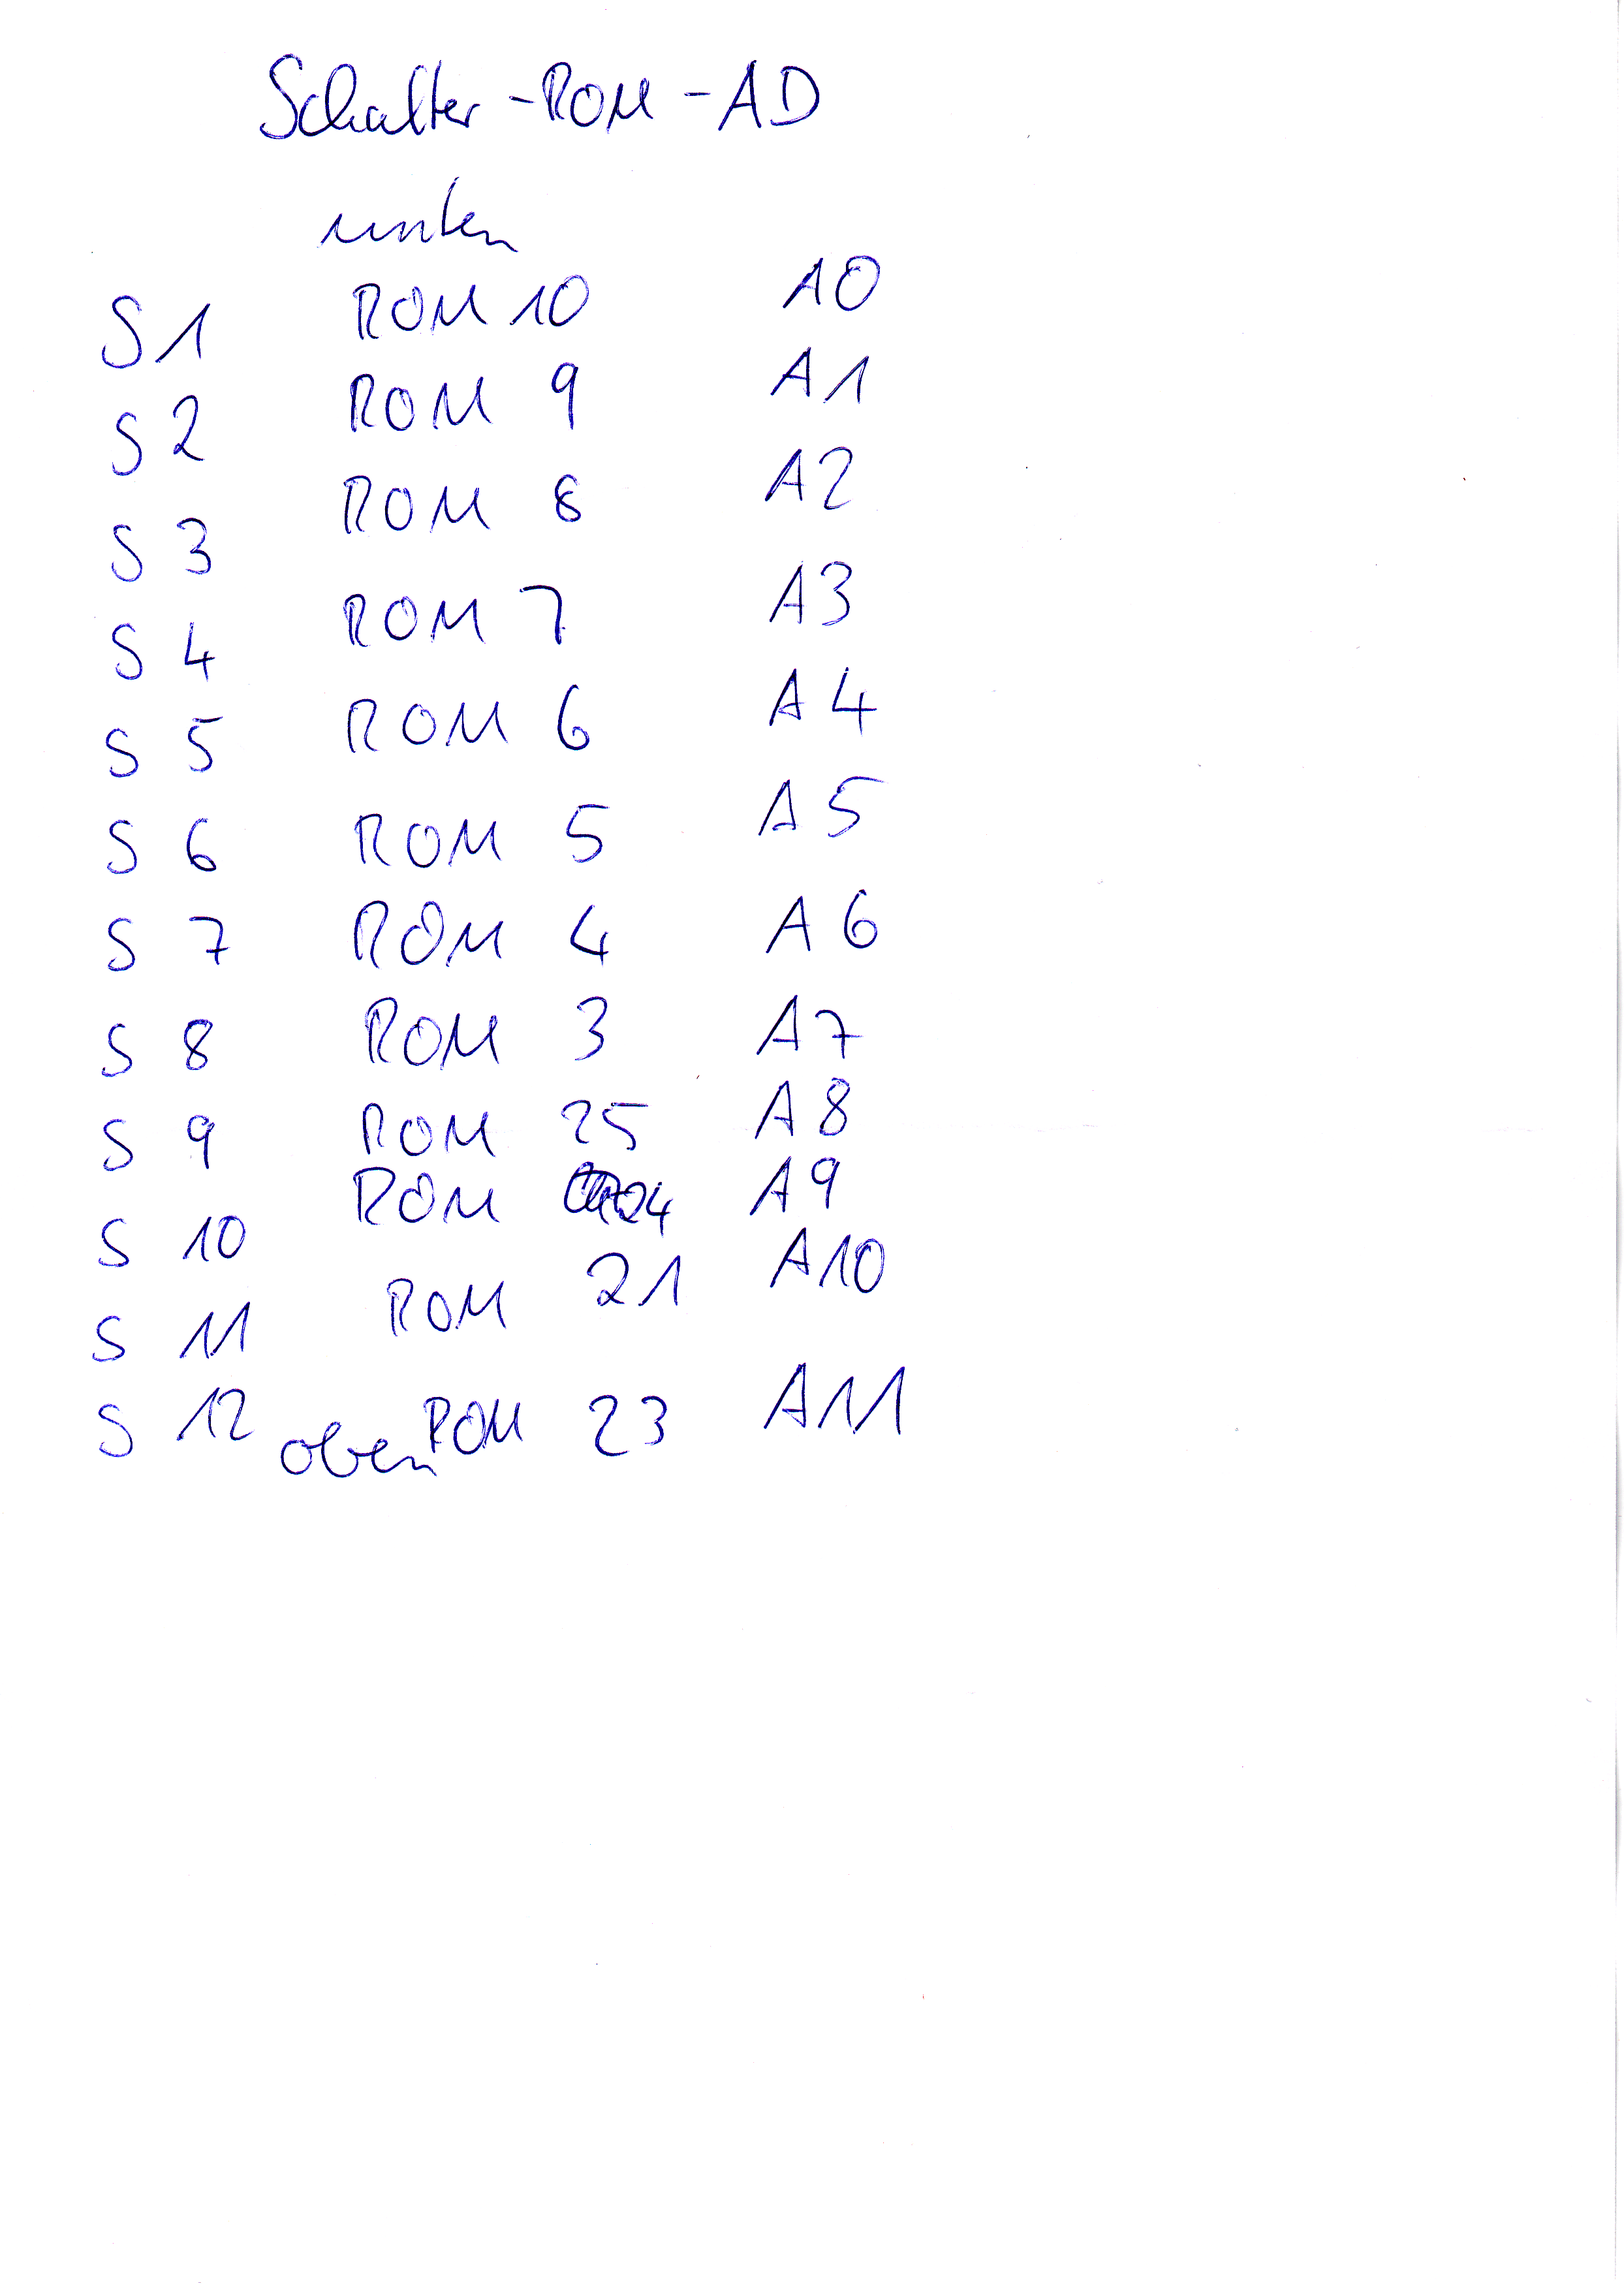 Schalter - ROM - AD
unten
S 1 ROM 10 A0
S 2 ROM 9 A1
S 3 ROM 8 A2
S 4 ROM 7 A3
S 5 ROM 6 A4
S 6 ROM 5 A5
S 7 ROM 4 A6
S 8 ROM 3 A7
S 9 ROM 25 A8
S 10 ROM 24 A9
S 11 ROM 21 A10
S 12 oben ROM 23 A11